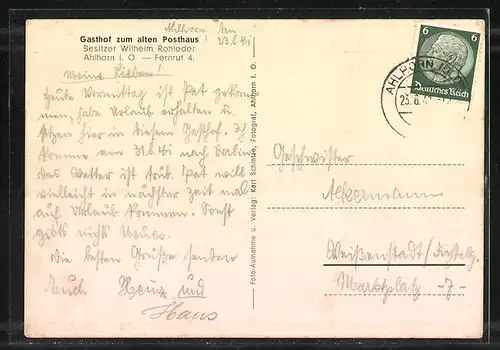 Gasthof zum alten Posthaus
Besitzer Wilhelm Rohleder
Ahlhorn i. O. — Fernruf 4.
Ahlhorn, den
23.6.41
Meine Lieben!
Heute Vormittag ist Pat gekom-
men, habe Urlaub erhalten u.
sitzen hier in diesem Gasthof. Ich
komme am 31.8.41 nach Berlin
das Wetter ist trüb. Pat will
vielleicht in nächster Zeit mal
auf Urlaub kommen. Sonst
gibts nichts Neues.
Die besten Grüße senden
Euch Heinz und
Hans
Foto-Aufnahme u. Verlag: Karl Schintze, Fotograf, Ahlhorn i. O.
AHLHORN
23.6.
6 6
Deutsches Reich
Geschwister
Ackermann
Weißenstadt/Fichtelg.
Marktplatz -7-